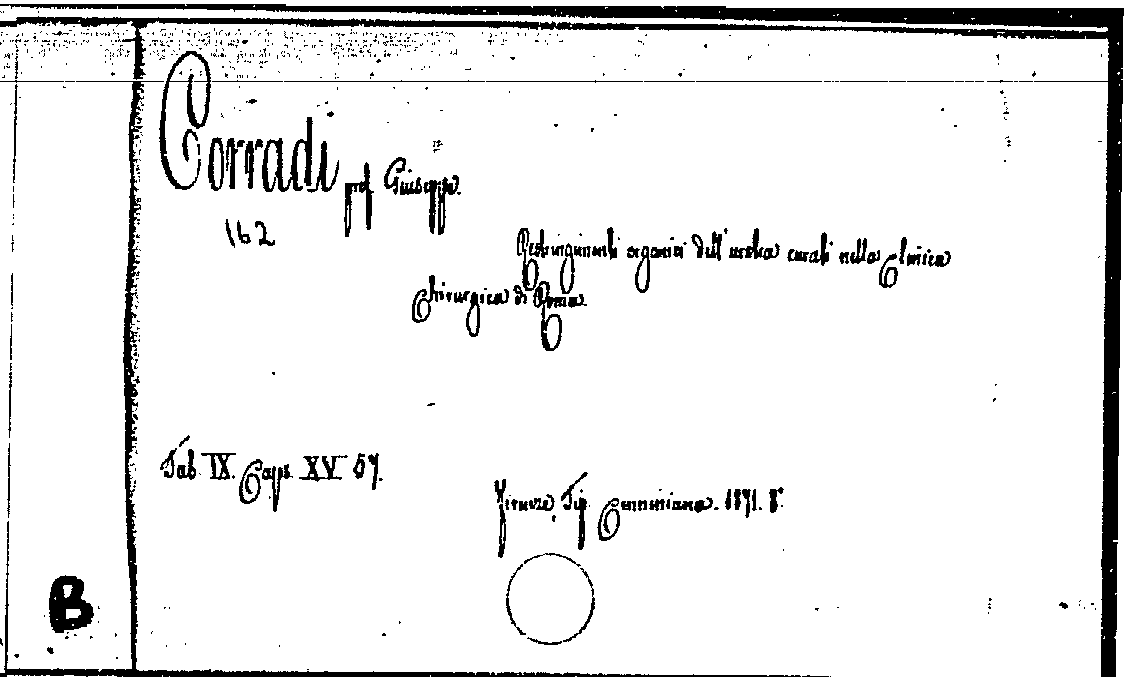 Corradi prof. Giuseppe.
162
Restringimenti organici dell'uretra curati nella Clinica
Chirurgica di Roma.
Tab. IX. Caps. XV. 57.
Firenze, Tip. Cenniniana. 1871. 8°
B